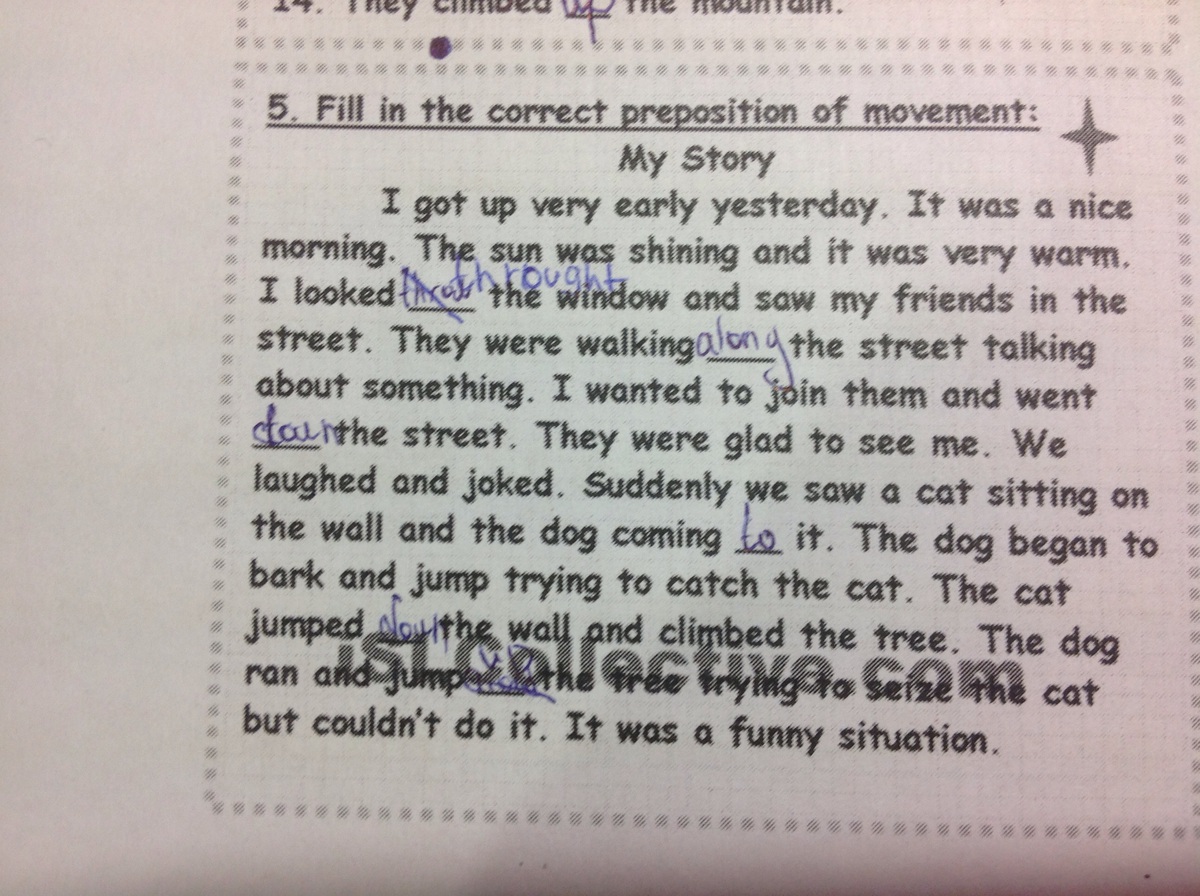 14. They climbed up the mountain.
5. Fill in the correct preposition of movement:
My Story
I got up very early yesterday. It was a nice
morning. The sun was shining and it was very warm.
I looked throught the window and saw my friends in the
street. They were walking along the street talking
about something. I wanted to join them and went
the street. They were glad to see me. We
laughed and joked. Suddenly we saw a cat sitting on
the wall and the dog coming to it. The dog began to
bark and jump trying to catch the cat. The cat
jumped the wall and climbed the tree. The dog
iSLCollective.com
ran and jump the tree trying to seize the cat
but couldn't do it. It was a funny situation.